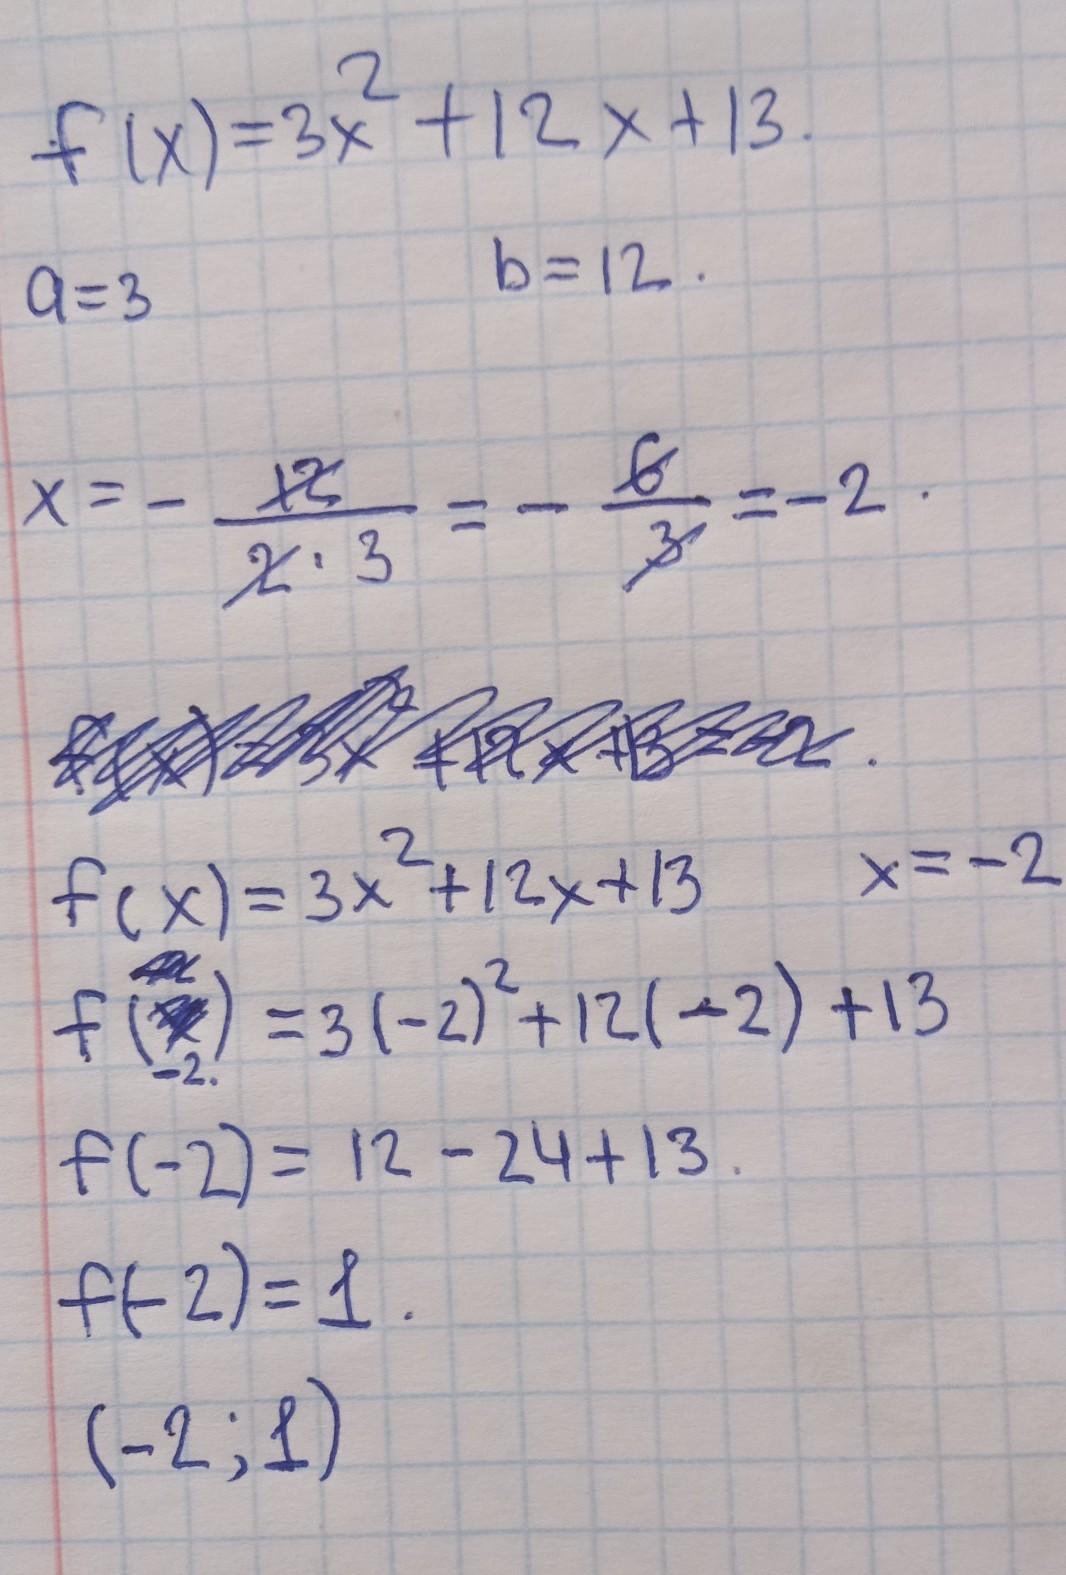 f(x)=3x²+12x+13.
a=3 b=12.
x=-12/2·3=-6/3=-2.
f(x)=3x²+12x+13 x=-2
f(-2.)=3(-2)²+12(-2)+13
f(-2)=12-24+13.
f(-2)=1.
(-2;1)